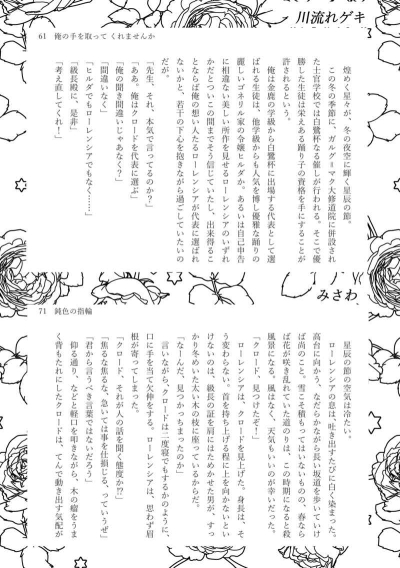 川流れゲキ
61 俺の手を取って くれませんか
煌めく星々が、冬の夜空に輝く星辰の節。
この冬の季節に、ガルグ=マク大修道院に併設され
た士官学校では白鷺杯なる催しが行われる。そこで優
勝した生徒は栄えある踊り子の資格を手にすることが
許されるという。
俺は金鹿の学級から白鷺杯に出場する代表として選
ばれる生徒は、他学級からも人気を博し優雅な踊りの
麗しいゴネリル家の令嬢ヒルダか。あるいは自己申告
に相違ない美しい所作を見せるローレンシアのいずれ
かだとついこの間までそう信じていたし、出来得るこ
とならば俺の想い人たるローレンシアが代表に選ばれ
ないかと、若干の下心を抱きながら過ごしていたいの
だが。
「先生、それ、本気で言ってるのか?」
「ああ。俺はクロードを代表に選ぶ」
「俺の聞き間違いじゃあなく?」
「間違いなく」
「ヒルダでもローレンシアでもなく……」
「級長殿に、是非」
「考え直してくれ!」
みさわ
71 鈍色の指輪
星辰の節の空気は冷たい。
ローレンシアの息は、吐き出すたびに白く染まった。
高台に向かう、なだらかながら長い坂道を歩いていけ
ば尚のこと。雪こそ積もってはいないものの、春なら
ば花が咲き乱れていた道のりは、この時期になると殺
風景になる。風はなく、天気もいいのが幸いだった。
「クロード、見つけたぞ!」
ローレンシアは、クロードを見上げた。身長は、そ
う変わらない。首を持ち上げる程に上を向かないとい
けないのは、級長の証を肩にはためかせた男が、すっ
かり冬めいた太い木の枝に座っているからだ。
「なーんだ、見つかっちまったのか」
言いながら、クロードは二度寝でもするかのように、
口に手を当て欠伸をする。ローレンシアは、思わず眉
根が寄ってしまった。
「クロード、それが人の話を聞く態度か!?」
「焦るな焦るな、急いては事を仕損じる、っていうぜ」
「君から言うべき言葉ではないだろう」
仰る通り、などと軽口を叩きながら、木の幹をうま
く背もたれにしたクロードは、てんで動き出す気配が